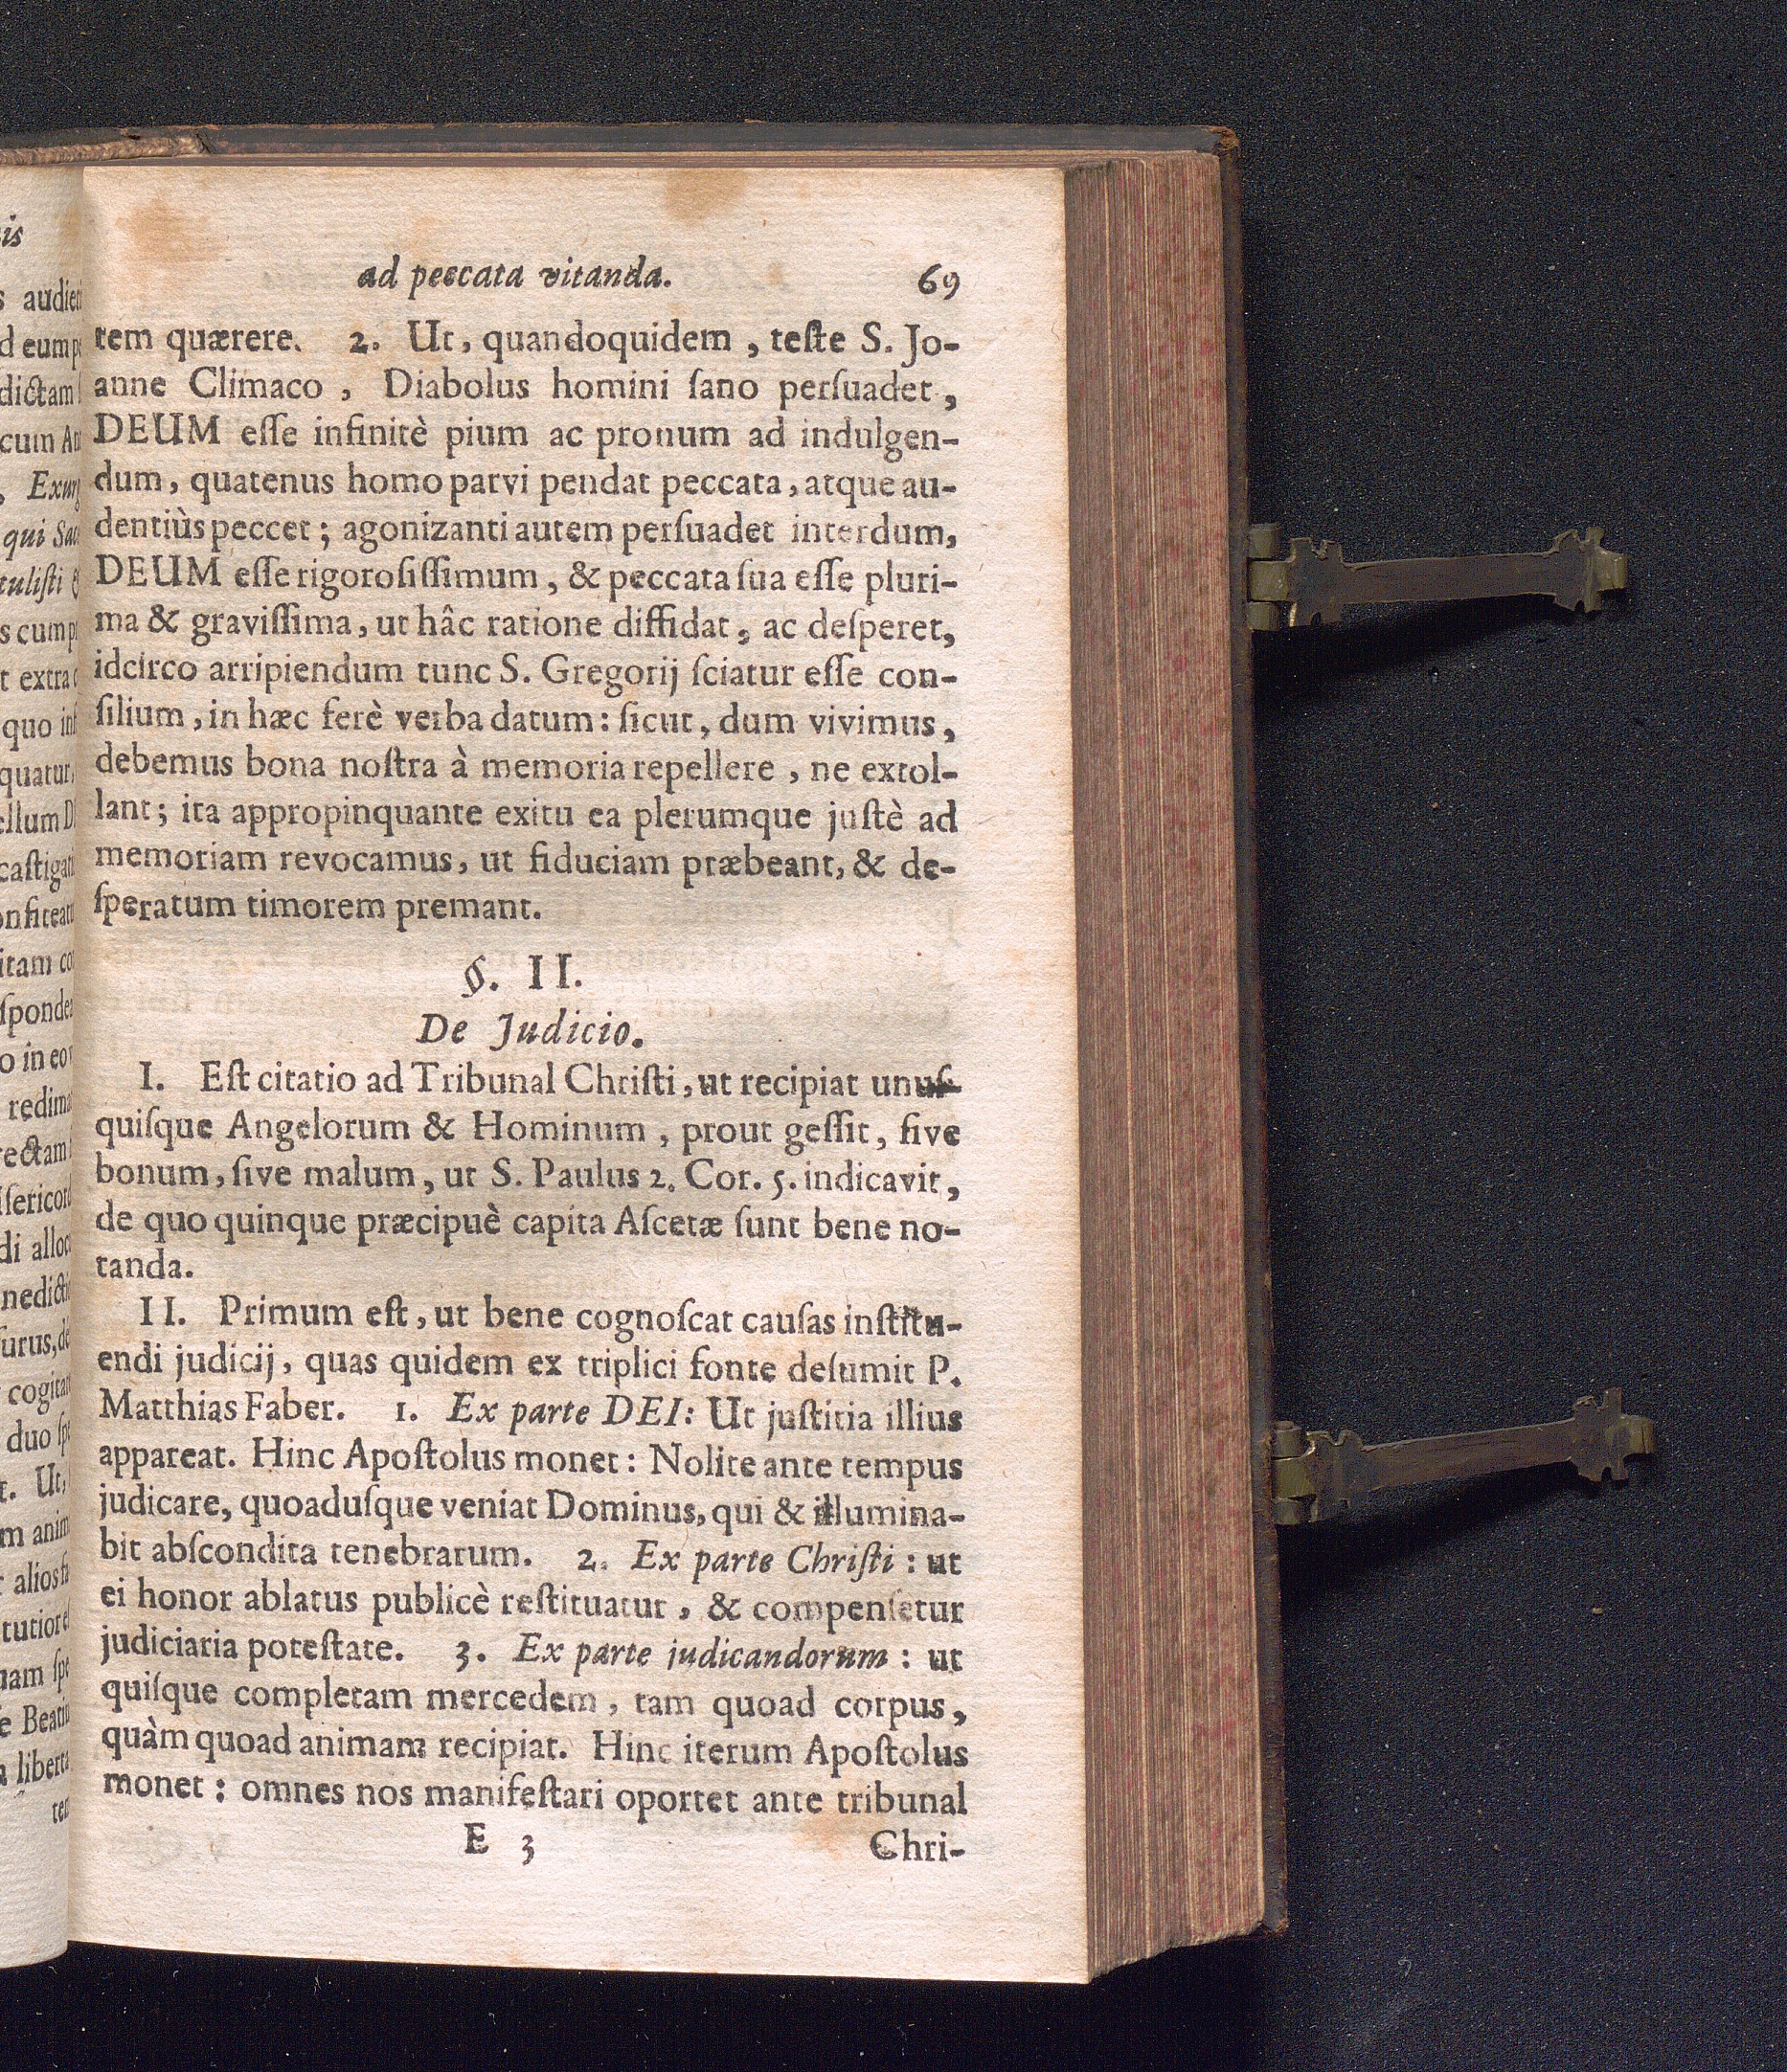 ad peccata vitanda. 69
tem quærere. 2. Ut, quandoquidem, teſte S. Jo-
anne Climaco, Diabolus homini ſano perſuadet,
DEUM eſſe infinitè pium ac pronum ad indulgen-
dum, quatenus homo parvi pendat peccata, atque au-
dentiùs peccet; agonizanti autem perſuadet interdum,
DEUM eſſe rigoroſiſſimum, & peccata ſua eſſe pluri-
ma & graviſſima, ut hâc ratione diffidat, ac deſperet,
idcirco arripiendum tunc S. Gregorij ſciatur eſſe con-
ſilium, in hæc ferè verba datum: ſicut, dum vivimus,
debemus bona noſtra à memoria repellere, ne extol-
lant; ita appropinquante exitu ea plerumque juſtè ad
memoriam revocamus, ut fiduciam præbeant, & de-
ſperatum timorem premant.
§. II.
De Judicio.
I. Eſt citatio ad Tribunal Chriſti, ut recipiat unuſ-
quiſque Angelorum & Hominum, prout geſſit, ſive
bonum, ſive malum, ut S. Paulus 2. Cor. 5. indicavit,
de quo quinque præcipuè capita Aſcetæ ſunt bene no-
tanda.
II. Primum eſt, ut bene cognoſcat cauſas inſtitu-
endi judicij, quas quidem ex triplici fonte deſumit P.
Matthias Faber. 1. Ex parte DEI: Ut juſtitia illius
appareat. Hinc Apoſtolus monet: Nolite ante tempus
judicare, quoaduſque veniat Dominus, qui & illumina-
bit abſcondita tenebrarum. 2. Ex parte Chriſti: ut
ei honor ablatus publicè reſtituatur, & compenſetur
judiciaria poteſtate. 3. Ex parte judicandorum: ut
quiſque completam mercedem, tam quoad corpus,
quàm quoad animam recipiat. Hinc iterum Apoſtolus
monet: omnes nos manifeſtari oportet ante tribunal
E 3 Chri-